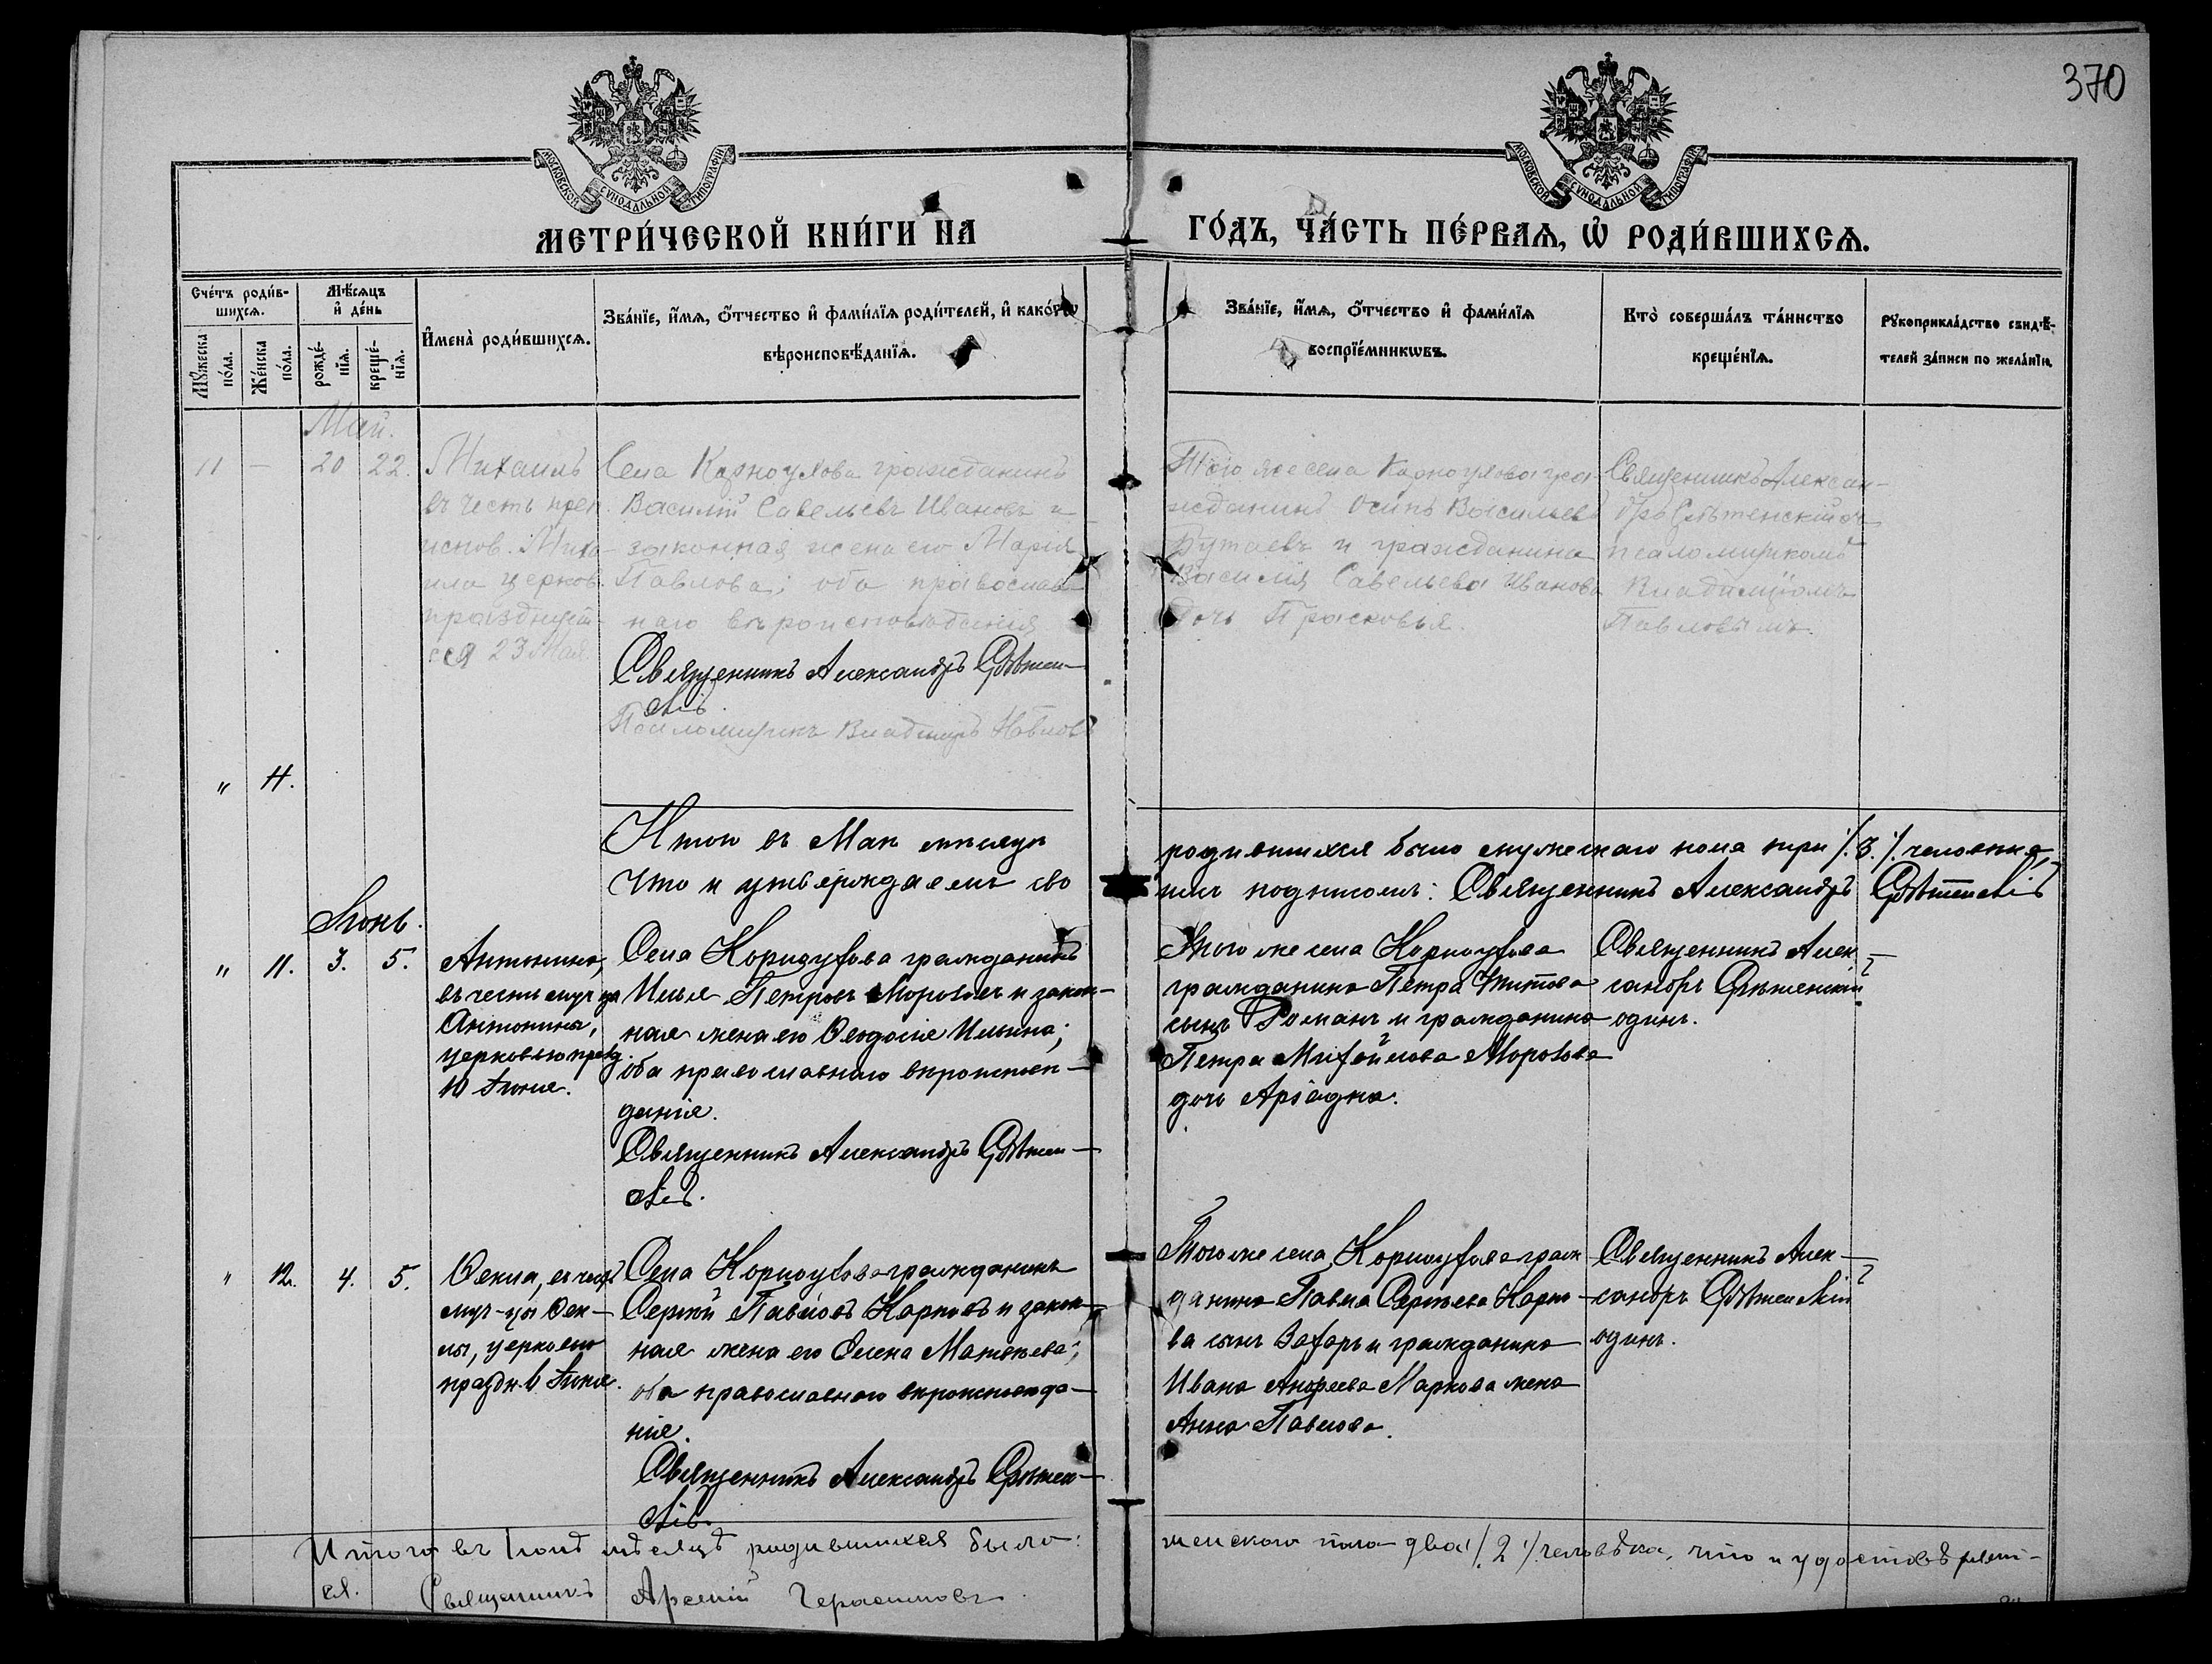 370
МОСКОВСКОЙ СУНОДАЛЬНОЙ ТИПОГРАФІИ
МОСКОВСКОЙ СУНОДАЛЬНОЙ ТИПОГРАФІИ
МЕТРИ́ЧЕСКОЙ КНИ́ГИ НА
ГО́ДЪ, ЧА́СТЬ ПЕ́РВАѦ, Ѡ҆ РОДИ́ВШИХСѦ.
Сче́тъ роди́в-
шихсѧ.
Мꙋ́жеска по́ла.
Же́нска по́ла.
Мѣ́сѧцъ
и҆ де́нь
рожде́-
нїѧ.
креще́-
нїѧ.
И҆мена̀ роди́вшихсѧ.
Зва́нїе, и҆́мѧ, ѻ҆́тчество и҆ фами́лїѧ роди́телей, и҆ како́гѡ
вѣроисповѣ́данїѧ.
Зва́нїе, и҆́мѧ, ѻ҆́тчество и҆ фами́лїѧ
воспрїе́мникѡвъ.
Кто̀ соверша́лъ та́инство
креще́нїѧ.
Рꙋкоприкла́дство свидѣ́-
телей за́писи по жела́нїю.
Май.
11 — 20 22.
Михаилъ
въ честь преп.
испов. Миха-
ила церков.
празднует-
ся 23 Мая
Села Карноухова гражданинъ
Василій Савельевъ Ивановъ и
законная жена его Марія
Павлова; оба православ-
наго вѣроисповѣданія
Священникъ Александръ Срѣтен-
скій.
Псаломщикъ Владиміръ Павловъ
Того же села Карноухова гра-
жданинъ Осипъ Васильевъ
Бутаевъ и гражданина
Василія Савельева Иванова
дочь Прасковья.
Священникъ Алексан-
дръ Срѣтенскій съ
псаломщикомъ
Владиміромъ
Павловымъ.
" Н.
Итого въ Маѣ мѣсяцѣ
родившихся было мужескаго пола три /.3./ человѣка,
Что и утверждаемъ сво
имъ подписомъ: Священникъ Александръ Срѣтенскій
Іюнь.
" 11. 3. 5.
Антонина,
въ честь муч-цы
Антонины,
церковью празд.
10 Іюня.
Села Карноухова гражданинъ
Илья Петровъ Морозовъ и закон-
ная жена его Ѳеодосія Ильина;
оба православнаго вѣроисповѣ-
данія.
Священникъ Александръ Срѣтен-
скій.
Того же села Карноухова
гражданина Петра Титова
сынъ Романъ и гражданина
Петра Михайлова Морозова
дочь Аріадна.
Священникъ Алек-
сандръ Срѣтенскій
одинъ.
" 12. 4. 5.
Ѳекла, въ честь
муч-цы Ѳек-
лы, церковью
праздн. Іюня.
Села Карноухова гражданинъ
Сергѣй Павловъ Карповъ и закон-
ная жена его Елена Матвѣева;
оба православнаго вѣроисповѣда-
нія.
Священникъ Александръ Срѣтен-
скій.
Того же села Карноухова граж-
данина Павла Сергѣева Карпо-
ва сынъ Захаръ и гражданина
Ивана Андреева Маркова жена
Анна Павлова.
Священникъ Алек-
сандръ Срѣтенскій
одинъ.
Итого въ Іюнѣ мѣсяцѣ родившихся было:
женскаго пола два /.2./ человѣка, что и удостовѣряет-
ся. Священникъ Арсеній Герасимовъ